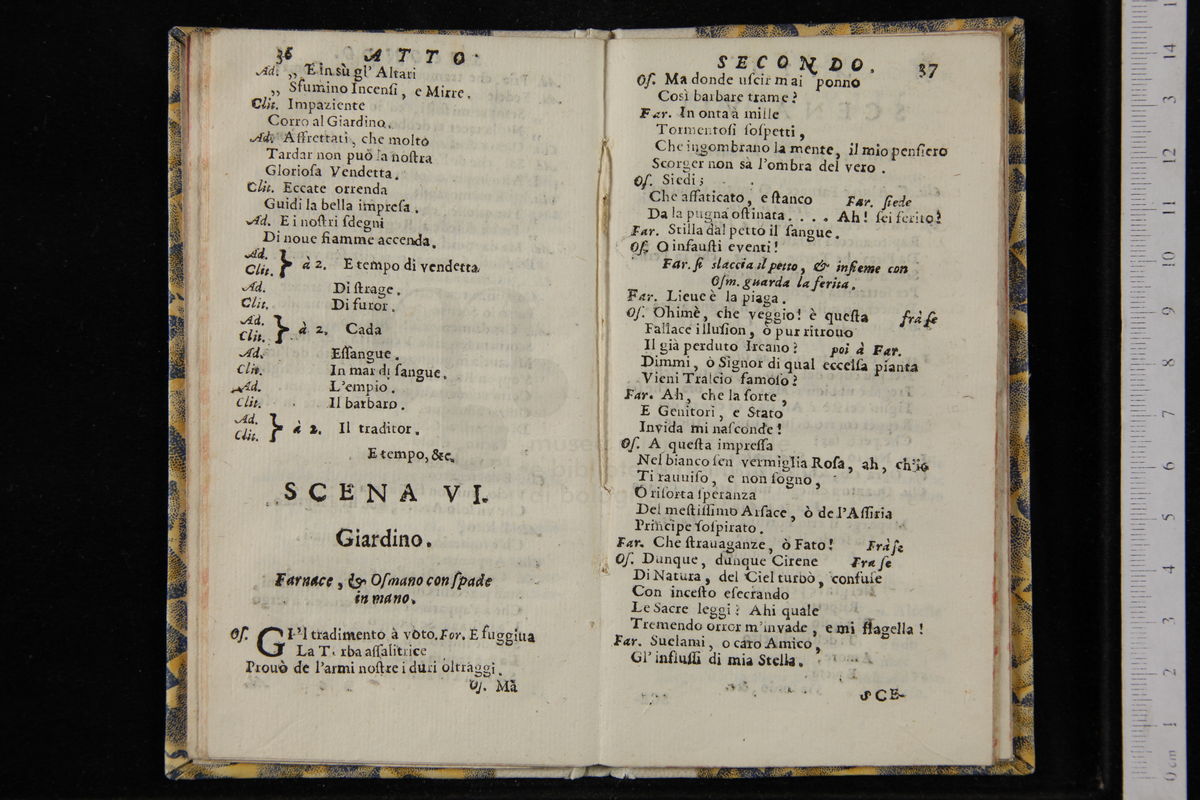 36 ATTO
Ad. „ E in sù gl' Altari
„ Sfumino Incensi, e Mirre.
Clit. Impaziente
Corro al Giardino.
Ad. Affrettati, che molto
Tardar non può la nostra
Gloriosa Vendetta.
Clit. Eccate orrenda
Guidi la bella impresa.
Ad. E i nostri sdegni
Di noue fiamme accenda.
Ad.
Clit. } à 2. E tempo di vendetta
Ad. Di strage.
Clit. Di furor.
Ad.
Clit. } à 2. Cada
Ad. Essangue.
Clit. In mar di sangue.
Ad. L'empio.
Clit. Il barbaro.
Ad.
Clit. } à 2. Il traditor.
E tempo, &c.
SCENA VI.
Giardino.
Farnace, & Osmano con spade
in mano.
Os. GI'l tradimento à vòto. Far. E fuggiua
La T rba assalitrice
Prouò de l'armi nostre i duri oltraggi.
Os. Mà
SECONDO. 37
Os. Ma donde uscir mai ponno
Così barbare trame?
Far. In onta à mille
Tormentosi sospetti,
Che ingombrano la mente, il mio pensiero
Scorger non sà l'ombra del vero.
Os. Siedi;
Che affaticato, e stanco Far. siede
Da la pugna ostinata.... Ah! sei ferito?
Far. Stilla dal petto il sangue.
Os. O infausti eventi!
Far. si slaccia il petto, & insieme con
Osm. guarda la ferita.
Far. Lieue è la piaga.
Os. Ohimè, che veggio! è questa frà se
Fallace illusion, ò pur ritrouo
Il già perduto Ircano? poi à Far.
Dimmi, ò Signor di qual eccelsa pianta
Vieni Tralcio famoso?
Far. Ah, che la sorte,
E Genitori, e Stato
Invida mi nasconde!
Os. A questa impressa
Nel bianco sen vermiglia Rosa, ah, ch'io
Ti rauuiso, e non sogno,
O risorta speranza
Del mestissimo Arsace, ò de l'Assiria
Principe sospirato.
Far. Che strauaganze, ò Fato! Frà se
Os. Dunque, dunque Cirene Fra se
Di Natura, del Ciel turbò, confuse
Con incesto esecrando
Le Sacre leggi? Ahi quale
Tremendo orror m'invade, e mi flagella!
Far. Suelami, o caro Amico,
Gl' influssi di mia Stella.
SCE-